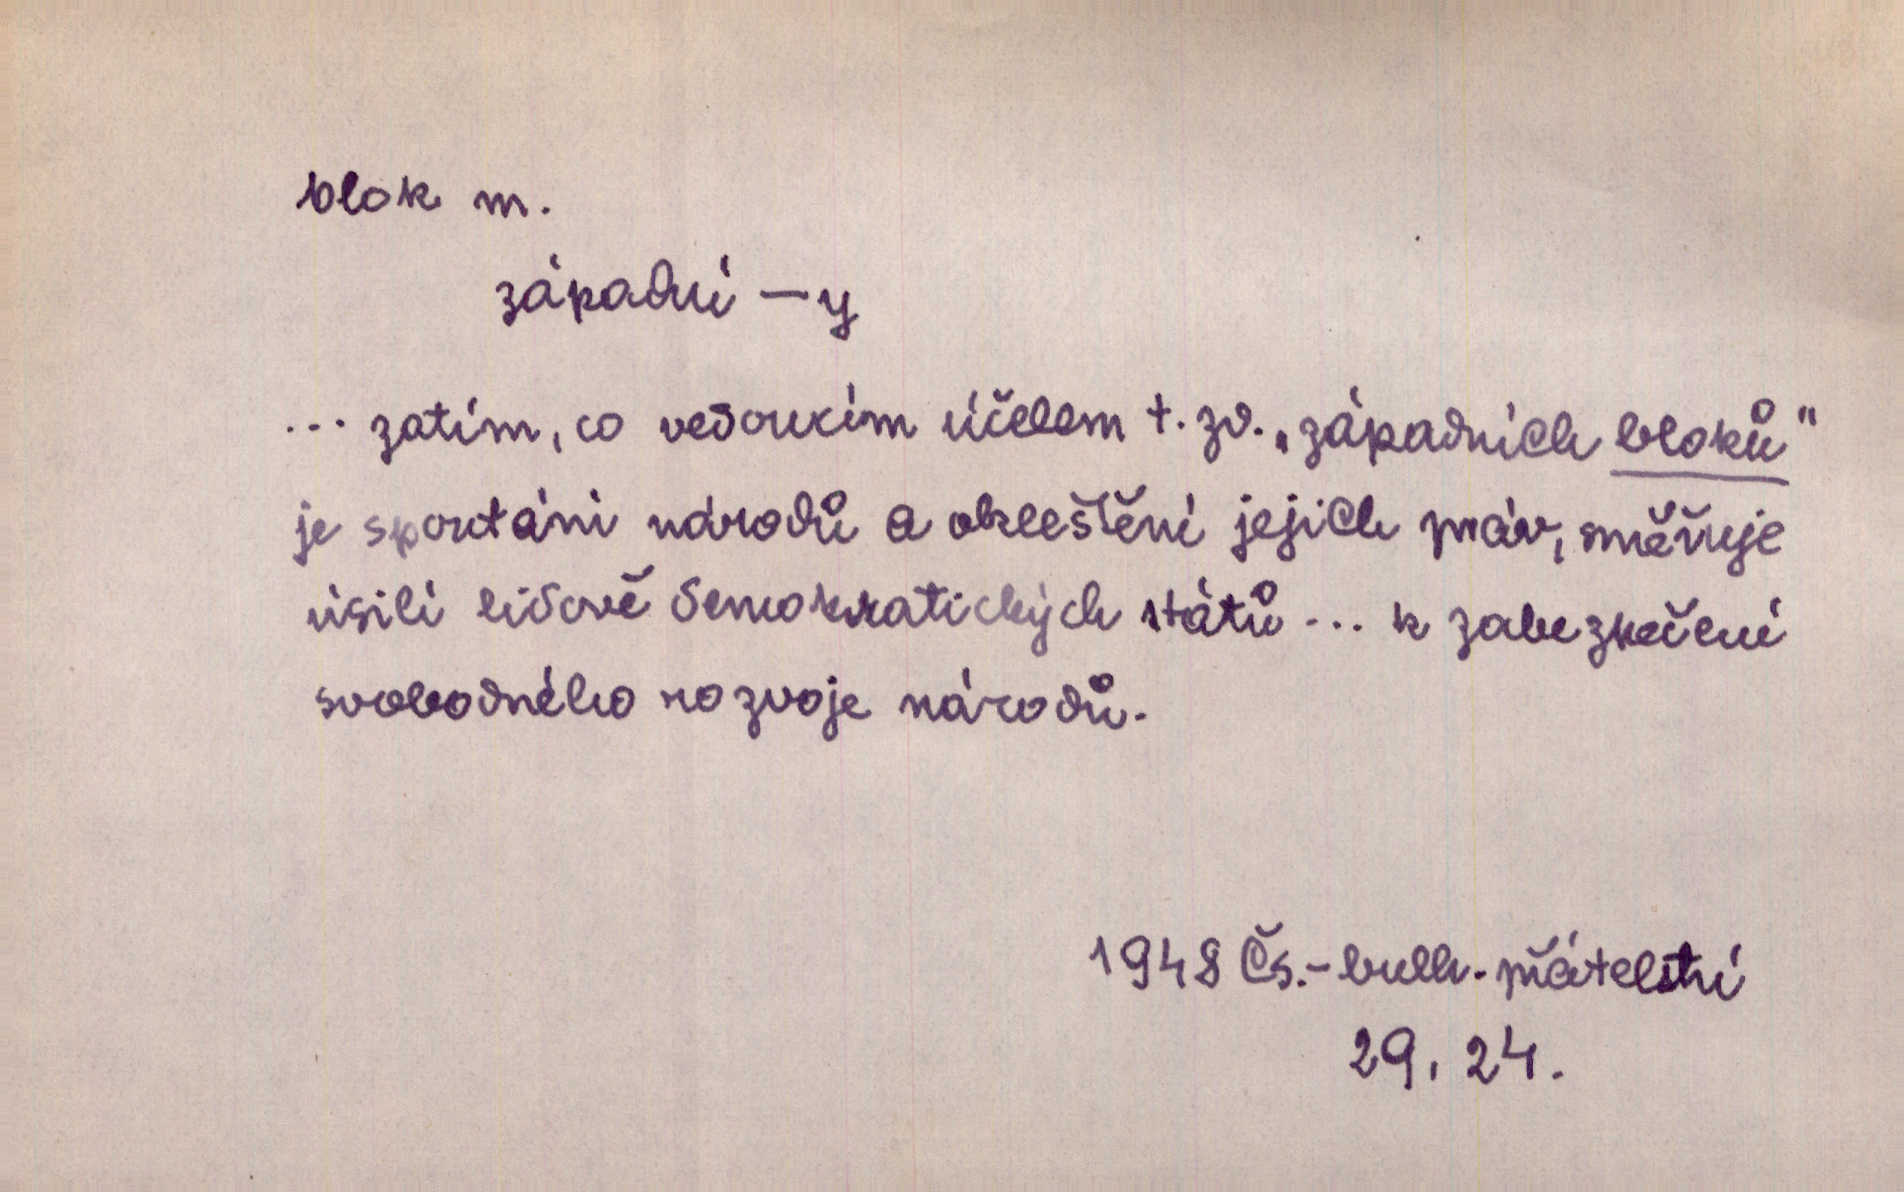 blok m.
západní – y
... zatím, co vedoucím účelem t. zv. „západních bloků"
je spoutání národů a okleštění jejich práv, směřuje
úsilí lidově demokratických států ... k zabezpečení
svobodného rozvoje národů.
1948 Čs.-bulh. přátelství
29, 24.